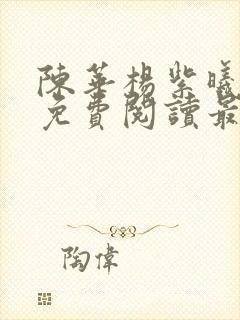 陳華楊紫曦
免費閱讀最
陶偉